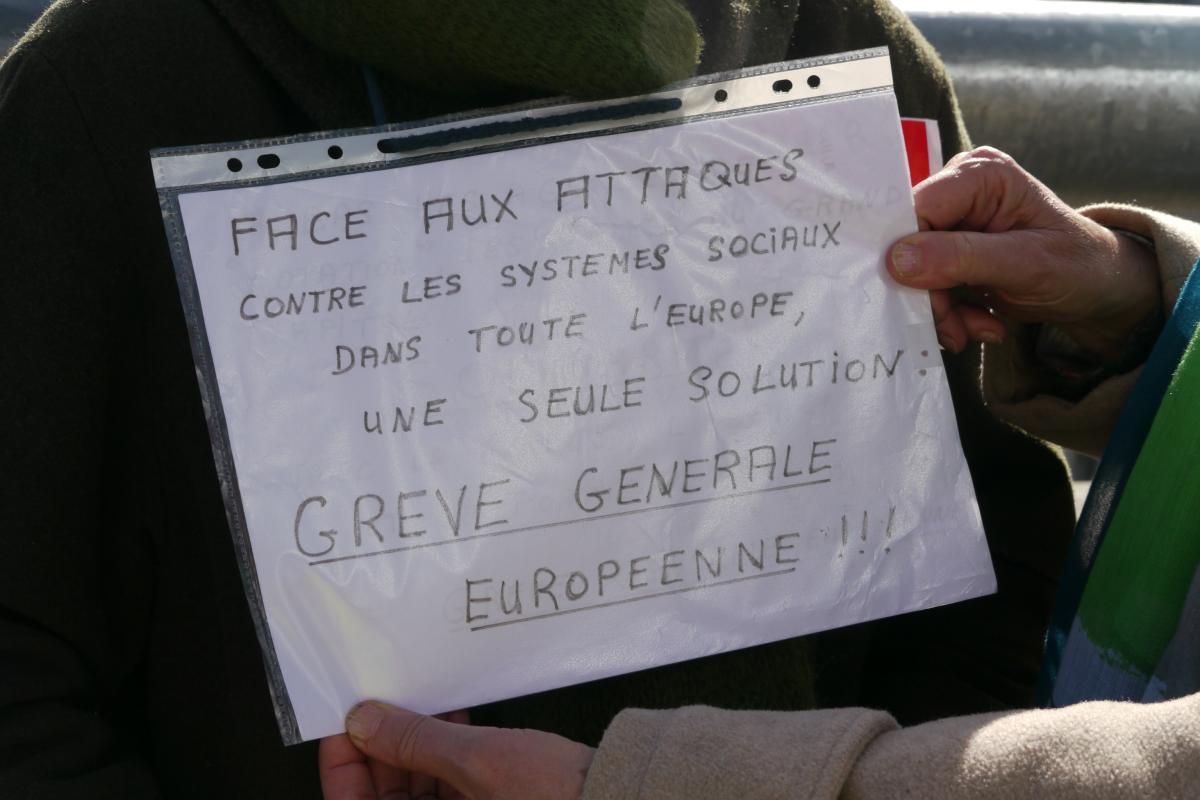 FACE AUX ATTAQUES
CONTRE LES SYSTEMES SOCIAUX
DANS TOUTE L'EUROPE,
UNE SEULE SOLUTION :
GREVE GENERALE
EUROPEENNE !!!